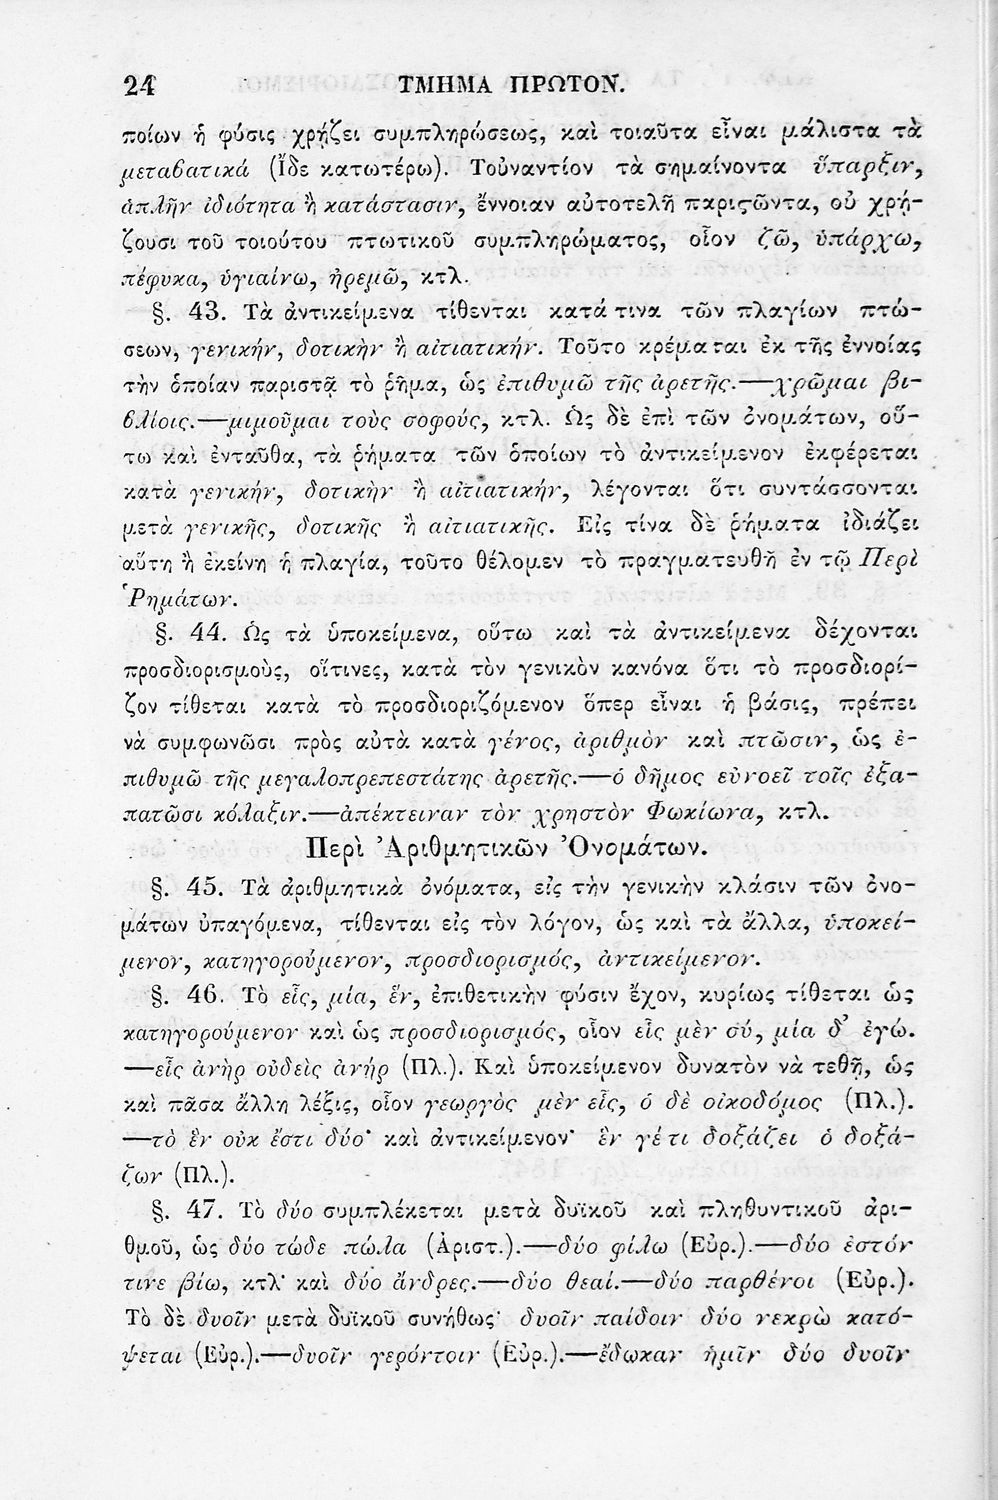 24 ΤΜΗΜΑ ΠΡΩΤΟΝ.
ποίων ἡ φύσις χρῄζει συμπληρώσεως, καὶ τοιαῦτα εἶναι μάλιστα τὰ
μεταβατικά (ἴδε κατωτέρω). Τοὐναντίον τὰ σημαίνοντα ὕπαρξιν,
ἁπλῆν ἰδιότητα ἢ κατάστασιν, ἔννοιαν αὐτοτελῆ παριςῶντα, οὐ χρῄ-
ζουσι τοῦ τοιούτου πτωτικοῦ συμπληρώματος, οἷον ζῶ, ὑπάρχω,
πέφυκα, ὑγιαίνω, ἠρεμῶ, κτλ.
§. 43. Τὰ ἀντικείμενα τίθενται κατά τινα τῶν πλαγίων πτώ-
σεων, γενικήν, δοτικὴν ἢ αἰτιατικήν. Τοῦτο κρέμαται ἐκ τῆς ἐννοίας
τὴν ὁποίαν παριστᾷ τὸ ῥῆμα, ὡς ἐπιθυμῶ τῆς ἀρετῆς.—χρῶμαι βι-
βλίοις.—μιμοῦμαι τοὺς σοφούς, κτλ. Ὡς δὲ ἐπὶ τῶν ὀνομάτων, οὕ-
τω καὶ ἐνταῦθα, τὰ ῥήματα τῶν ὁποίων τὸ ἀντικείμενον ἐκφέρεται
κατὰ γενικήν, δοτικὴν ἢ αἰτιατικήν, λέγονται ὅτι συντάσσονται
μετὰ γενικῆς, δοτικῆς ἢ αἰτιατικῆς. Εἰς τίνα δὲ ῥήματα ἰδιάζει
αὕτη ἢ ἐκείνη ἡ πλαγία, τοῦτο θέλομεν τὸ πραγματευθῆ ἐν τῷ Περὶ
Ῥημάτων.
§. 44. Ὡς τὰ ὑποκείμενα, οὕτω καὶ τὰ ἀντικείμενα δέχονται
προσδιορισμοὺς, οἵτινες, κατὰ τὸν γενικὸν κανόνα ὅτι τὸ προσδιορί-
ζον τίθεται κατὰ τὸ προσδιοριζόμενον ὅπερ εἶναι ἡ βάσις, πρέπει
νὰ συμφωνῶσι πρὸς αὐτὰ κατὰ γένος, ἀριθμὸν καὶ πτῶσιν, ὡς ἐ-
πιθυμῶ τῆς μεγαλοπρεπεστάτης ἀρετῆς.—ὁ δῆμος εὐνοεῖ τοῖς ἐξα-
πατῶσι κόλαξιν.—ἀπέκτειναν τὸν χρηστὸν Φωκίωνα, κτλ.
Περὶ Ἀριθμητικῶν Ὀνομάτων.
§. 45. Τὰ ἀριθμητικὰ ὀνόματα, εἰς τὴν γενικὴν κλάσιν τῶν ὀνο-
μάτων ὑπαγόμενα, τίθενται εἰς τὸν λόγον, ὡς καὶ τὰ ἄλλα, ὑποκεί-
μενον, κατηγορούμενον, προσδιορισμός, ἀντικείμενον.
§. 46. Τὸ εἷς, μία, ἕν, ἐπιθετικὴν φύσιν ἔχον, κυρίως τίθεται ὡς
κατηγορούμενον καὶ ὡς προσδιορισμός, οἷον εἷς μὲν σύ, μία δ' ἐγώ.
—εἷς ἀνὴρ οὐδεὶς ἀνήρ (Πλ.). Καὶ ὑποκείμενον δυνατὸν νὰ τεθῇ, ὡς
καὶ πᾶσα ἄλλη λέξις, οἷον γεωργὸς μὲν εἷς, ὁ δὲ οἰκοδόμος (Πλ.).
—τὸ ἓν οὐκ ἔστι δύο· καὶ ἀντικείμενον· ἕν γέ τι δοξάζει ὁ δοξά-
ζων (Πλ.).
§. 47. Τὸ δύο συμπλέκεται μετὰ δυϊκοῦ καὶ πληθυντικοῦ ἀρι-
θμοῦ, ὡς δύο τώδε πώλα (Ἀριστ.).—δύο φίλω (Εὐρ.).—δύο ἐστόν
τινε βίω, κτλ· καὶ δύο ἄνδρες.—δύο θεαί.—δύο παρθένοι (Εὐρ.).
Τὸ δὲ δυοῖν μετὰ δυϊκοῦ συνήθως· δυοῖν παίδοιν δύο νεκρὼ κατό-
ψεται (Εὐρ.).—δυοῖν γερόντοιν (Εὐρ.).—ἔδωκαν ἡμῖν δύο δυοῖν